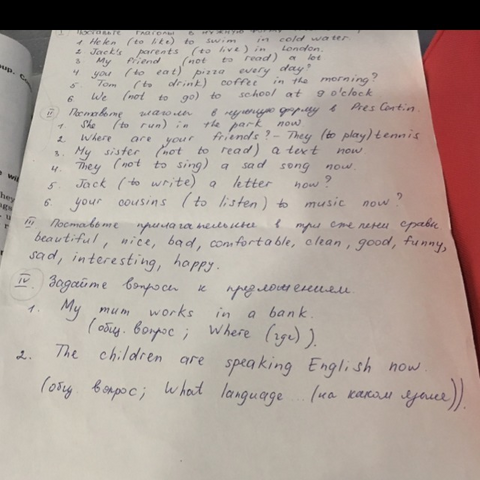 I. Поставьте глаголы в нужную форму
1. Helen (to like) to swim in cold water
2. Jack's parents (to live) in London.
3. My friend (not to read) a lot
4. you (to eat) pizza every day?
5. Tom (to drink) coffee in the morning?
6. We (not to go) to school at 9 o'clock
II Поставьте глаголы в нужную форму в Pres Contin.
1. She (to run) in the park now.
2. Where are your friends? - They (to play) tennis
3. My sister (not to read) a text now
4. They (not to sing) a sad song now.
5. Jack (to write) a letter now?
6. your cousins (to listen) to music now?
III Поставьте прилагательные в три степени сравн.
beautiful, nice, bad, comfortable, clean, good, funny,
sad, interesting, happy.
IV. Задайте вопросы к предложениям.
1. My mum works in a bank.
(общ. вопрос; Where (где)).
2. The children are speaking English now.
(общ. вопрос; What language ... (на каком языке)).